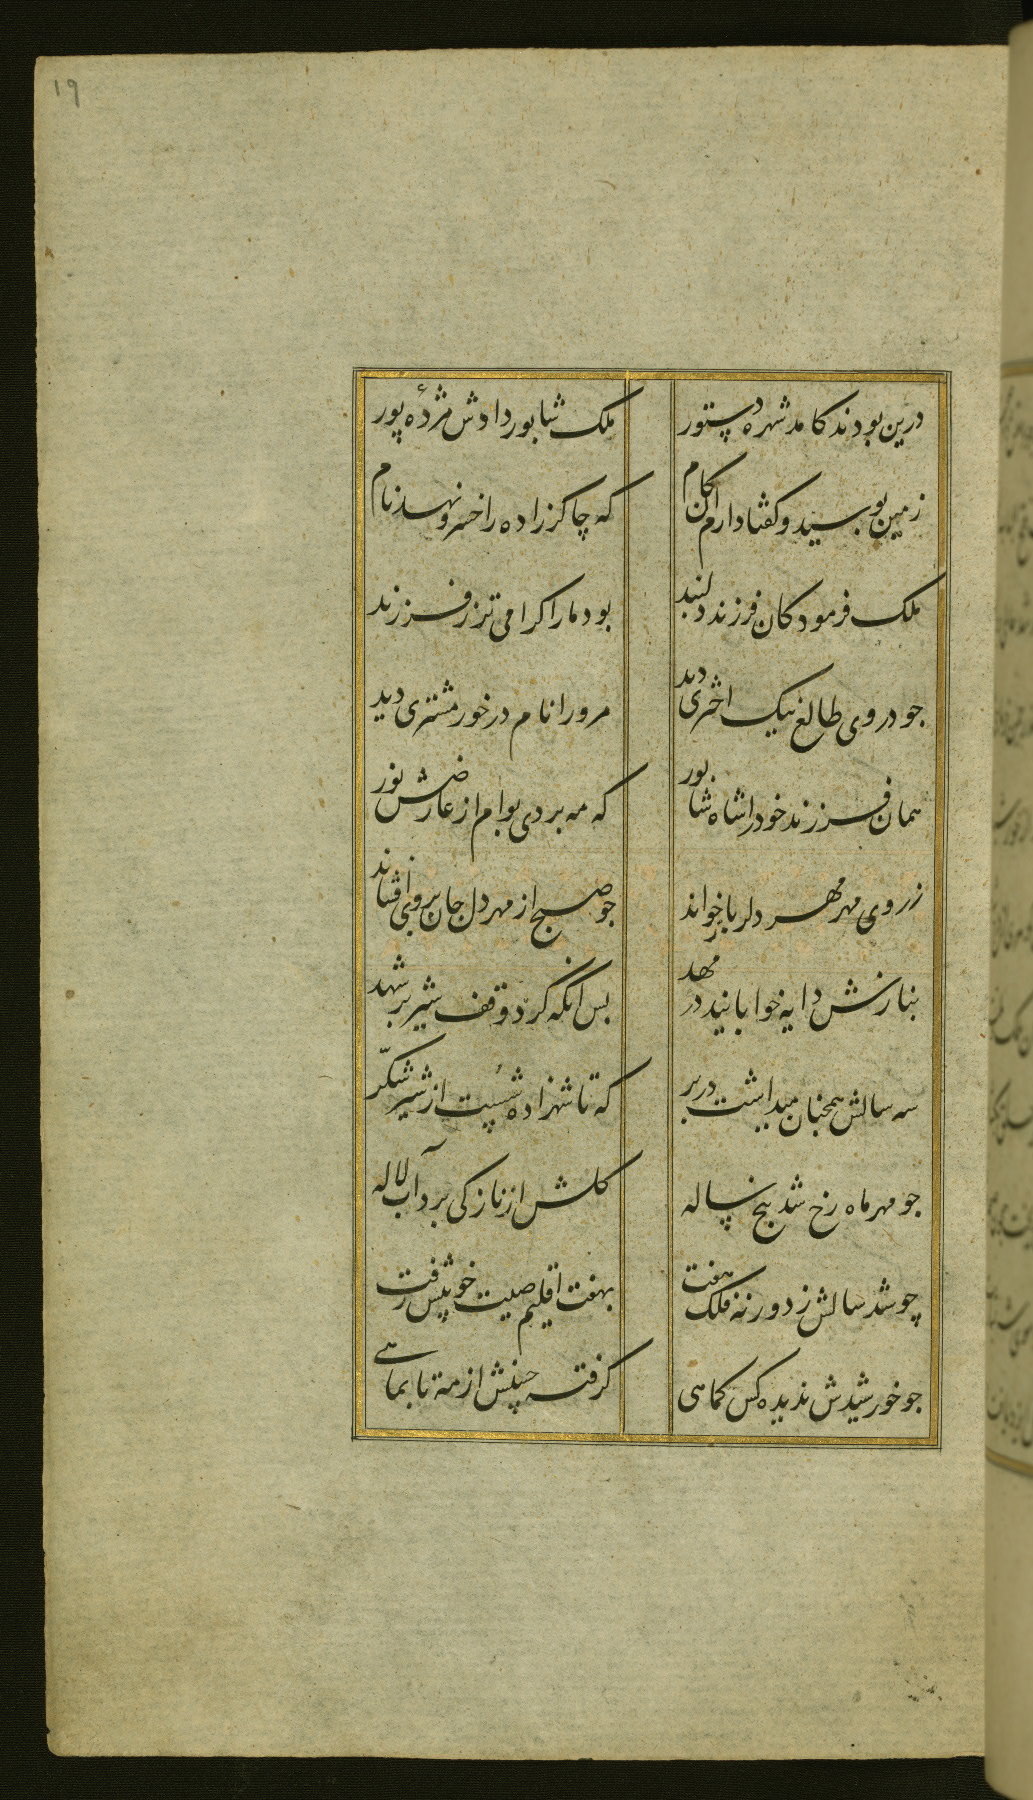 ۱۹
درین بودند کامد شهره دستور ملک شابور دادش مژدهٔ پور
زمین بوسید و کفتا دارم این کام که چاکرزاده را خسرو نهد نام
ملک فرمود کان فرزند دلبند بود ما را کرامی‌تر ز فرزند
جو در وی طالع نیک اختری دید مرو را نام در خور مشتری دید
همان فرزند خود را شاه شابور که مه بردی بوام از عارضش نور
ز روی مهر مهر دلربا خواند جو صبح از مهر دل جان بروی افشاند
بنازش دایه خوابانید در مهد بس انکه کرد وقف شیر بر شهد
سه سالش همجنان میداشت در بر که تا شهزاده شست از شیر شکّر
جو مهر ماه رخ شد بنج ساله کلش از نازکی برد آب لاله
چو شد سالش ز دور نه فلک هفت بهفت اقلیم صیت خوبیش رفت
جو خورشیدش ندیده کس کماهی کرفته حسنش از مه تا بماهی